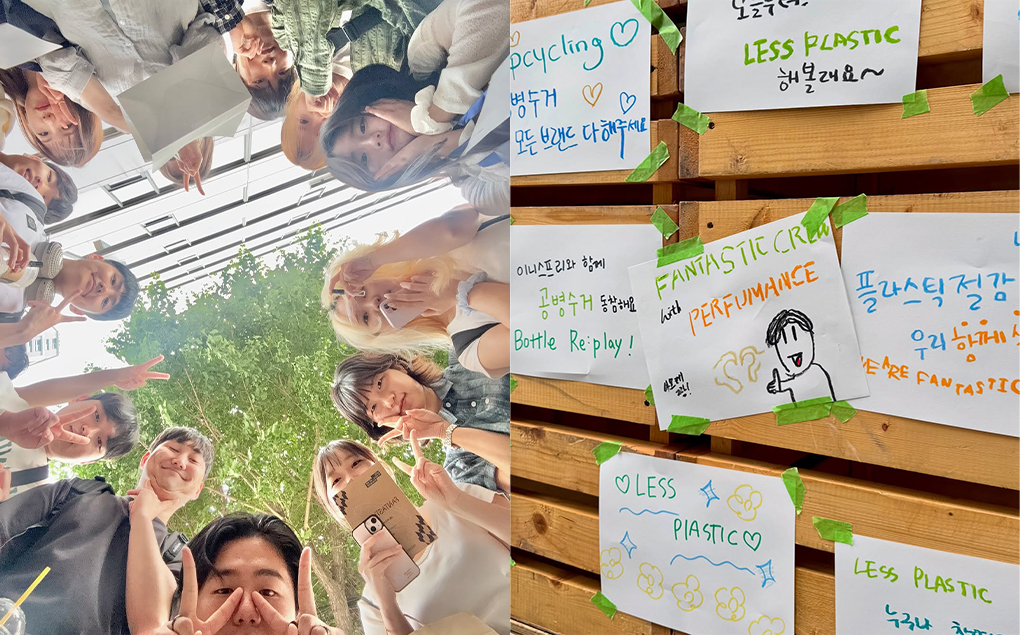 pcycling
병수거
모든 브랜드 다 해주세요
LESS PLASTIC
해볼래요~
이니스프리와 함께
공병수거 동참해요
Bottle Re:play!
FANTASTIC CREW
with
PERFUMANCE
플라스틱 절감
우리 함께
WE ARE FANTASTIC
LESS
PLASTIC
LESS PLASTIC
누구나